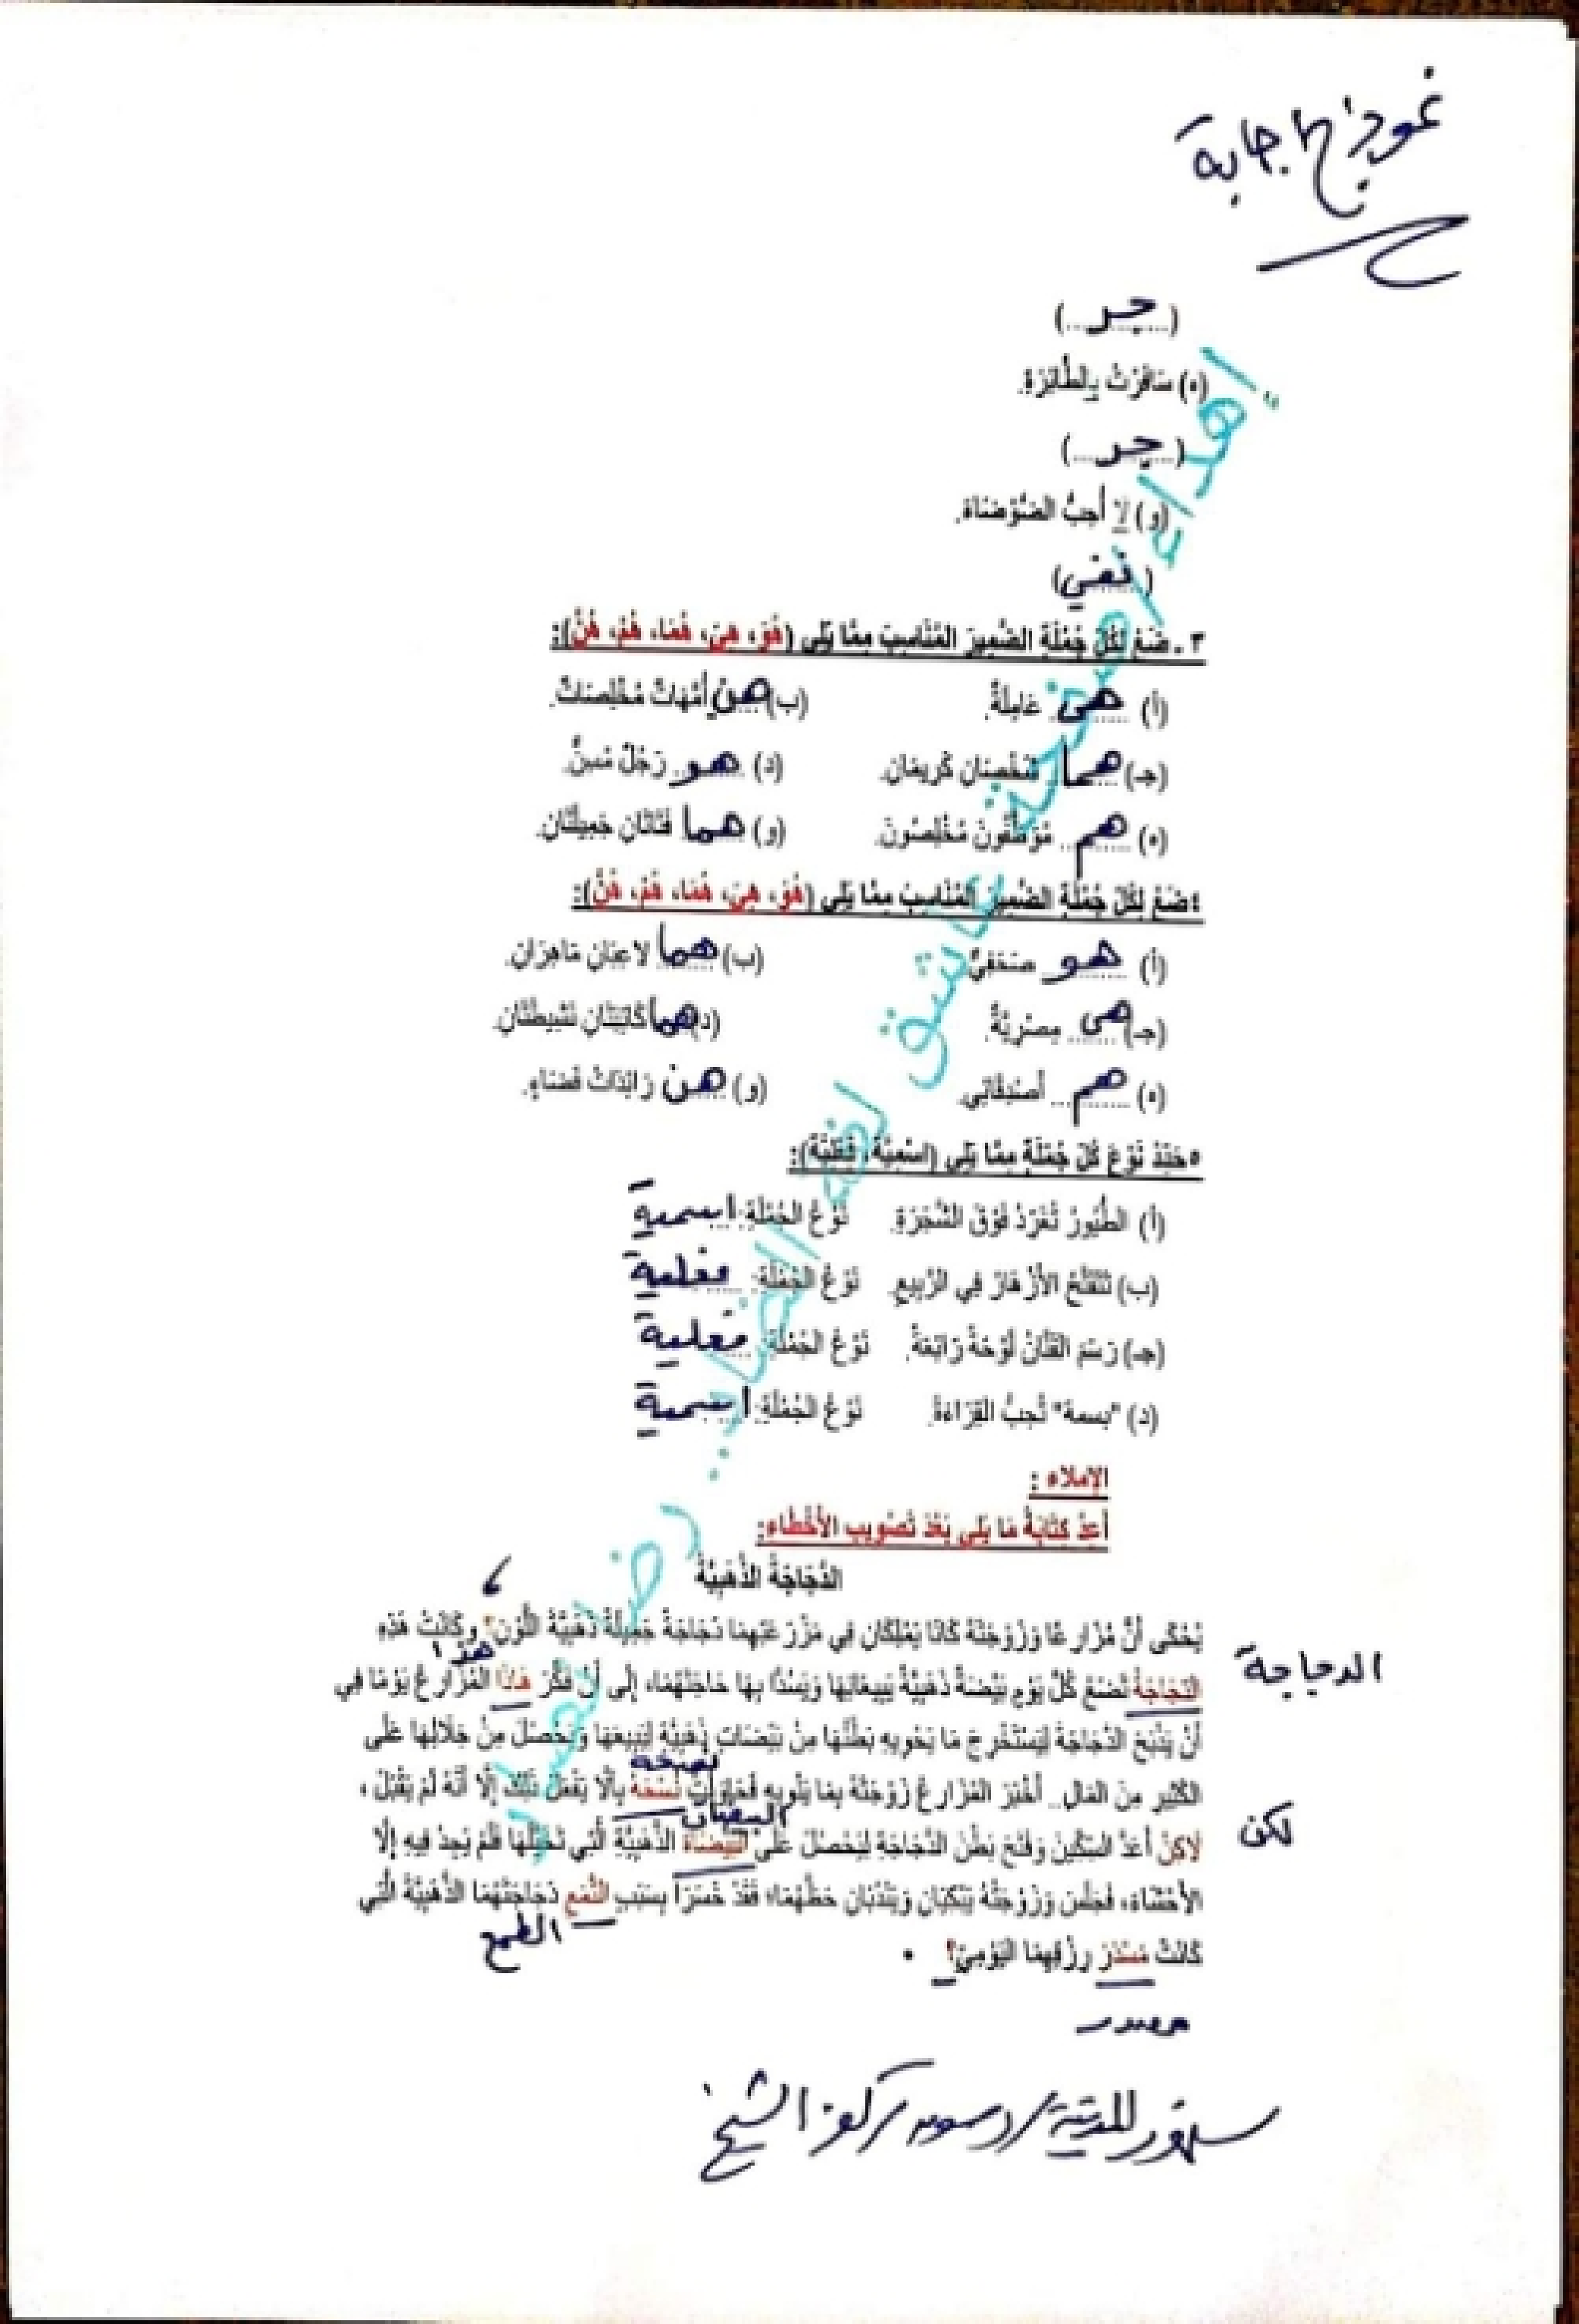 نموذج إجابة
(..جر..)
(ه) سَافَرْتُ بِالطَّائِرَةِ.
(..جر..)
(و) لَا أُحِبُّ الضَّوْضَاءَ.
(نفي)
٣ . ضَعْ لِكُلِّ جُمْلَةٍ الضَّمِيرَ المُنَاسِبَ مِمَّا يَلِي (هُوَ، هِيَ، هُمَا، هُمْ، هُنَّ):
(أ) هى عَامِلَةٌ. (ب) هن أُمَّهَاتٌ مُخْلِصَاتٌ.
(جـ) هما شَخْصَانِ كَرِيمَانِ. (د) هو رَجُلٌ مُسِنٌّ.
(ه) هم مُوَظَّفُونَ مُخْلِصُونَ. (و) هما فَتَاتَانِ جَمِيلَتَانِ.
٤ ضَعْ لِكُلِّ جُمْلَةٍ الضَّمِيرَ المُنَاسِبَ مِمَّا يَلِي (هُوَ، هِيَ، هُمَا، هُمْ، هُنَّ):
(أ) هو صَحَفِيٌّ (ب) هما لاعِبَانِ مَاهِرَانِ.
(جـ) هى مِصْرِيَّةٌ. (د) هما كَاتِبَتَانِ نَشِيطَتَانِ.
(ه) هم أَصْدِقَائِي. (و) هن رَائِدَاتُ فَضَاءٍ.
٥ حَدِّدْ نَوْعَ كُلِّ جُمْلَةٍ مِمَّا يَلِي (اسْمِيَّة، فِعْلِيَّة):
(أ) الطُّيُورُ تُغَرِّدُ فَوْقَ الشَّجَرَةِ. نَوْعُ الجُمْلَةِ: اسمية
(ب) تَتَفَتَّحُ الأَزْهَارُ فِي الرَّبِيعِ. نَوْعُ الجُمْلَةِ: فعلية
(جـ) رَسَمَ الفَنَّانُ لَوْحَةً رَائِعَةً. نَوْعُ الجُمْلَةِ: فعلية
(د) "بسمة" تُحِبُّ القِرَاءَةَ. نَوْعُ الجُمْلَةِ: اسمية
الإملاء :
أَعِدْ كِتَابَةَ مَا يَلِي بَعْدَ تَصْوِيبِ الأَخْطَاءِ:
الدَّجَاجَةُ الذَّهَبِيَّةُ
،
يُحْكَى أَنَّ مُزَارِعًا وَزَوْجَتَهُ كَانَا يَمْلِكَانِ فِي مَزْرَعَتِهِمَا دَجَاجَةً جَمِيلَةً ذَهَبِيَّةَ اللَّوْنِ؟ وَكَانَتْ هَذِهِ
هذا
التَجَاجَةُ تَضَعُ كُلَّ يَوْمٍ بَيْضَةً ذَهَبِيَّةً يَبِيعَانِهَا وَيَسُدَّا بِهَا حَاجَتَهُمَا، إِلَى أَنْ فَكَّرَ هَاذَا المُزَارِعُ يَوْمًا فِي
الدجاجة
أَنْ يَذْبَحَ الدَّجَاجَةَ لِيَسْتَخْرِجَ مَا يَحْوِيهِ بَطْنُهَا مِنْ بَيْضَاتٍ ذَهَبِيَّةٍ لِيَبِيعَهَا وَيَحْصُلَ مِنْ خِلَالِهَا عَلَى
نصحه
الكَثِيرِ مِنَ المَالِ.. أَخْبَرَ المُزَارِعُ زَوْجَتَهُ بِمَا يَنْوِيهِ فَحَاوَلَتْ نُسْحَهُ بِأَلَّا يَفْعَلَ ذَلِكَ إِلَّا أَنَّهُ لَمْ يَقْبَلْ ،
البيضات
لَاكِنْ أَعَدَّ السِّكِّينَ وَفَتَحَ بَطْنَ الدَّجَاجَةِ لِيَحْصُلَ عَلَى البَيْضَاة الذَّهَبِيَّةِ الَّتِي تَخَيَّلَهَا فَلَمْ يَجِدْ فِيهِ إِلَّا
لكن
الأَحْشَاءَ، فَجَلَسَ وَزَوْجَتُهُ يَبْكِيَانِ وَيَنْدُبَانِ حَظَّهُمَا؛ فَقَدْ خَسِرَا بِسَبَبِ التَّمَعِ دَجَاجَتَهُمَا الذَّهَبِيَّةَ الَّتِي
الطمع
كَانَتْ مَسْدَرَ رِزْقِهِمَا اليَوْمِيِّ؟ .
مصدر
سنهور المدينة / دسوق / كفر الشيخ